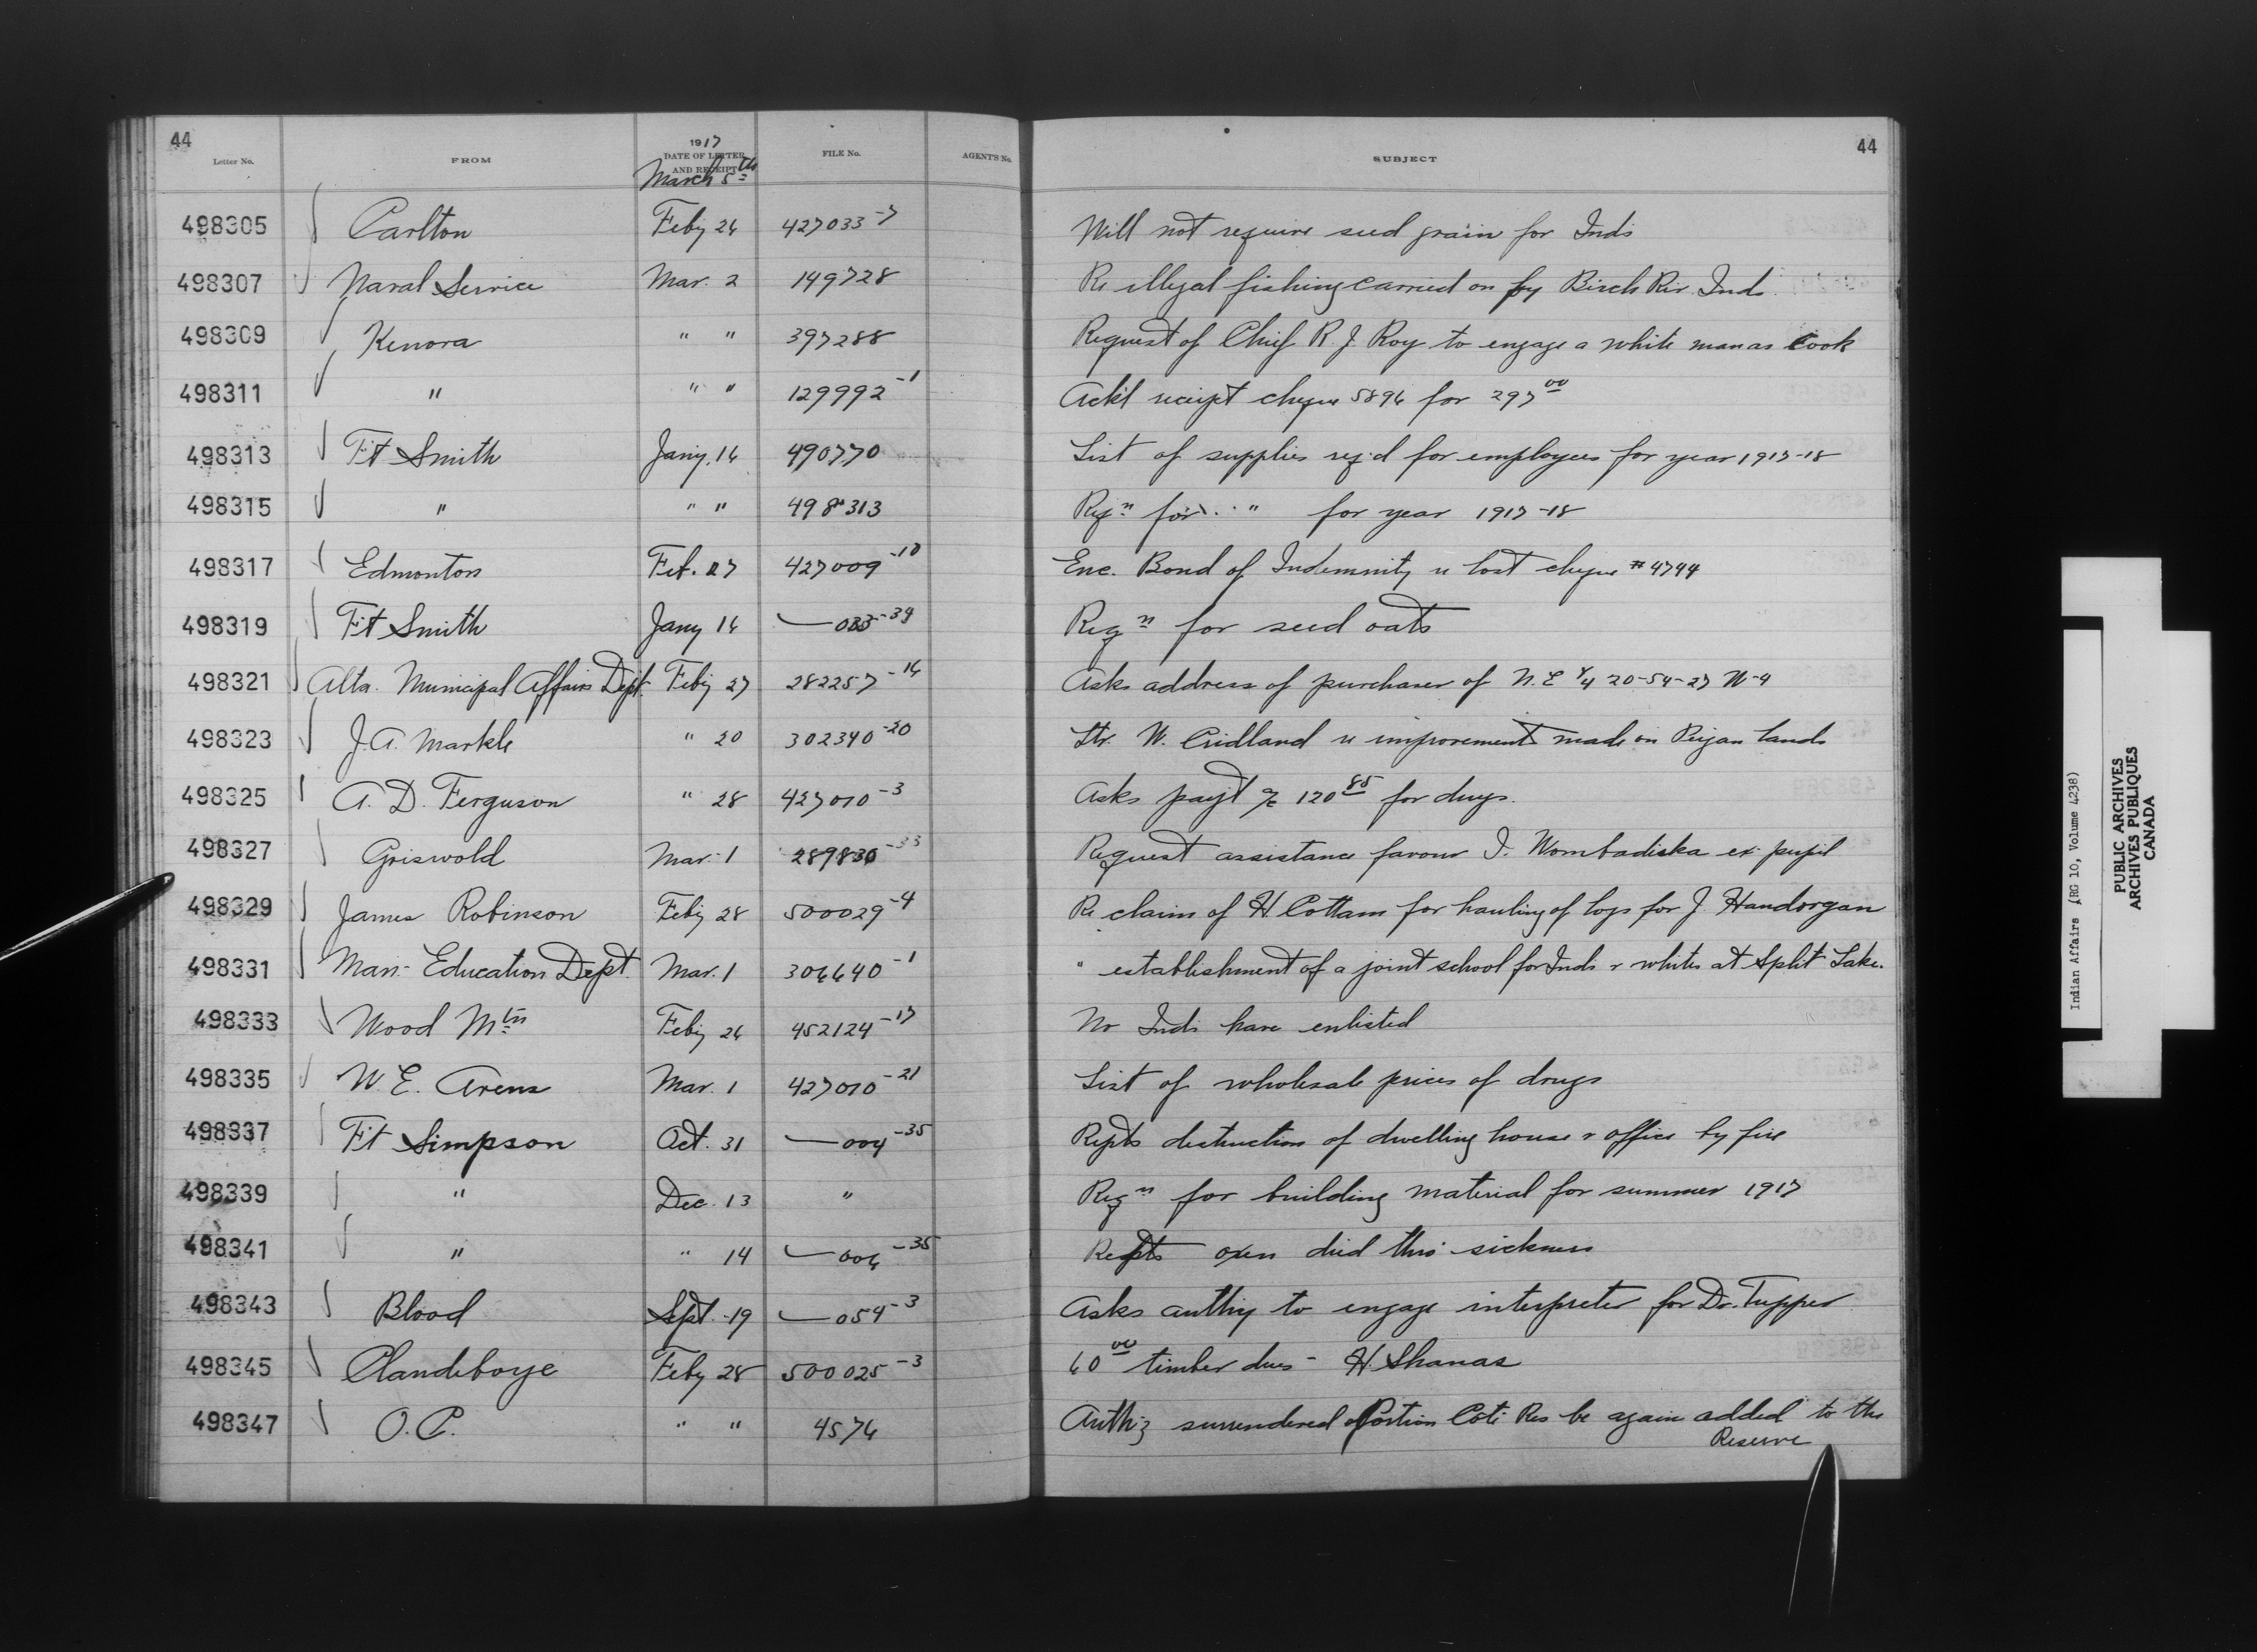 44
1917
Letter No. FROM DATE OF LETTER AND RECEIPT FILE No. AGENT'S No. SUBJECT
44
March 5th
498305 Carlton Feby 26 427033-7 Will not require seed grain for Inds
498307 Naval Service Mar. 2 149728 Re illegal fishing carried on by Birch Riv. Inds.
498309 Kenora " " 397288 Request of Chief R. J. Roy to engage a white man as Cook
498311 " " " 129992-1 Ackt receipt cheque 5896 for 297 00
498313 Ft Smith Jany. 16 490770 List of supplies reqd for employees for year 1917-18
498315 " " " 498313 Reqn for " for year 1917-18
498317 Edmonton Feb. 27 427009-10 Enc. Bond of Indemnity re lost cheque #4744
498319 Ft Smith Jany 16 — 033-39 Reqn for seed oats
498321 Alta. Municipal Affairs Dept. Feby 27 282257-16 Asks address of purchaser of N.E 1/4 20-54-27 W-4
498323 J.A. Markle " 20 302340-20 Ltr. W. Cridland re improvements made on Peigan lands
498325 A. D. Ferguson " 28 427010-3 Asks payt a/c 120 85 for drugs.
498327 Griswold Mar. 1 289830-33 Request assistance favour I. Wombadiska ex-pupil
498329 James Robinson Feby 28 500029-4 Re claim of H. Cottam for hauling of logs for J. Handorgan
498331 Man. Education Dept. Mar. 1 306640-1 " establishment of a joint school for Inds & whites at Split Lake.
498333 Wood Mtn Feby 26 452124-17 No Inds have enlisted
498335 W. E. Arens Mar. 1 427010-21 List of wholesale prices of drugs
498337 Ft Simpson Oct. 31 — 004-35 Repts destruction of dwelling house & office by fire
498339 " Dec. 13 " Reqn for building material for summer 1917
498341 " " 14 — 006-35 Repts oxen died thro' sickness
498343 Blood Sept. 19 — 054-3 Asks authy to engage interpreter for Dr. Tupper
498345 Clandeboye Feby 28 500025-3 60 00 timber dues - H. Shanas
498347 O.C. " " 4576 Authz surrendered portion Coté Res be again added to the
Reserve
Indian Affairs (RG 10, Volume 4238)
PUBLIC ARCHIVES
ARCHIVES PUBLIQUES
CANADA